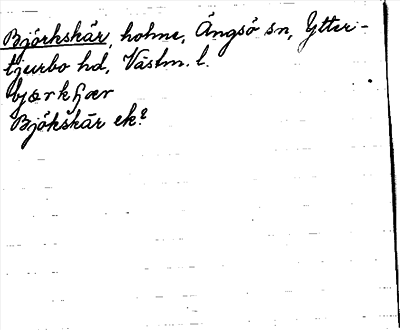 Björkskär, holme, Ängsö sn, Ytter-
tjurbo hd, Västm. l.
bjærkʃær
Björkskär ek?